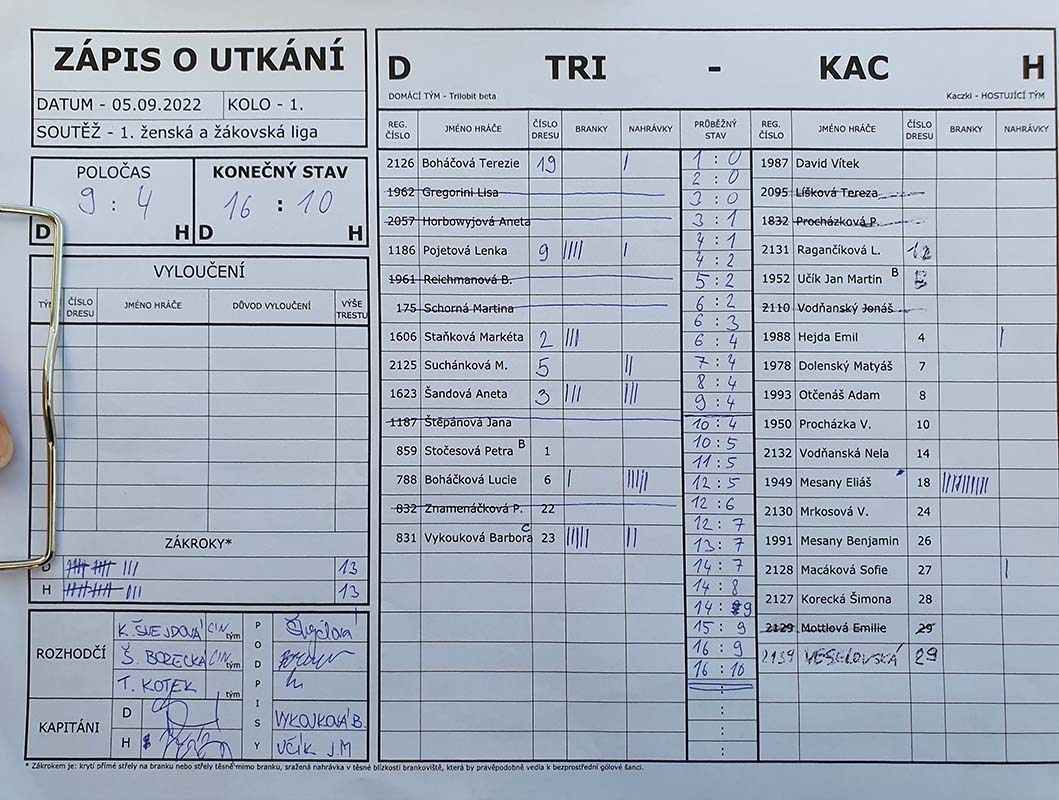 ZÁPIS O UTKÁNÍ
DATUM - 05.09.2022 KOLO - 1.
SOUTĚŽ - 1. ženská a žákovská liga
POLOČAS KONEČNÝ STAV
9 : 4 16 : 10
D H D H
VYLOUČENÍ
TÝM ČÍSLO DRESU JMÉNO HRÁČE DŮVOD VYLOUČENÍ VÝŠE TRESTU
ZÁKROKY*
D 13
H 13
ROZHODČÍ
K. ŠVEJDOVÁ tým
Š. BORECKÁ tým
T. KOTEK tým
PODPISY
KAPITÁNI
D VYKOUKOVÁ B.
H UČÍK J.M
D TRI - KAC H
DOMÁCÍ TÝM - Trilobit beta Kaczki - HOSTUJÍCÍ TÝM
REG. ČÍSLO JMÉNO HRÁČE ČÍSLO DRESU BRANKY NAHRÁVKY PRŮBĚŽNÝ STAV REG. ČÍSLO JMÉNO HRÁČE ČÍSLO DRESU BRANKY NAHRÁVKY
2126 Boháčová Terezie 19 |
1962 Gregorini Lisa
2057 Horbowyjová Aneta
1186 Pojetová Lenka 9 |||| |
1961 Reichmanová B.
175 Schorná Martina
1606 Staňková Markéta 2 |||
2125 Suchánková M. 5 ||
1623 Šandová Aneta 3 ||| |||
1187 Štěpánová Jana
859 Stočesová Petra B 1
788 Boháčková Lucie 6 | |||||
832 Znamenáčková P. 22
831 Vykouková Barbora C 23 ||||| ||
1 : 0
2 : 0
3 : 0
3 : 1
4 : 1
4 : 2
5 : 2
6 : 2
6 : 3
6 : 4
7 : 4
8 : 4
9 : 4
10 : 4
10 : 5
11 : 5
12 : 5
12 : 6
12 : 7
13 : 7
14 : 7
14 : 8
14 : 9
15 : 9
16 : 9
16 : 10
1987 David Vítek
2095 Líšková Tereza
1832 Procházková P.
2131 Ragančíková L. 12
1952 Učík Jan Martin B
2110 Vodňanský Jonáš
1988 Hejda Emil 4 |
1978 Dolenský Matyáš 7
1993 Otčenáš Adam 8
1950 Procházka V. 10
2132 Vodňanská Nela 14
1949 Mesany Eliáš 18 ||||||||||
2130 Mrkosová V. 24
1991 Mesany Benjamin 26
2128 Macáková Sofie 27 |
2127 Korecká Šimona 28
2129 Mottlová Emilie 29
2139 VESELOVSKÁ 29
* Zákrokem je: krytí přímé střely na branku nebo střely těsně mimo branku, sražená nahrávka v těsné blízkosti brankoviště, která by pravěpodobně vedla k bezprostřední gólové šanci.